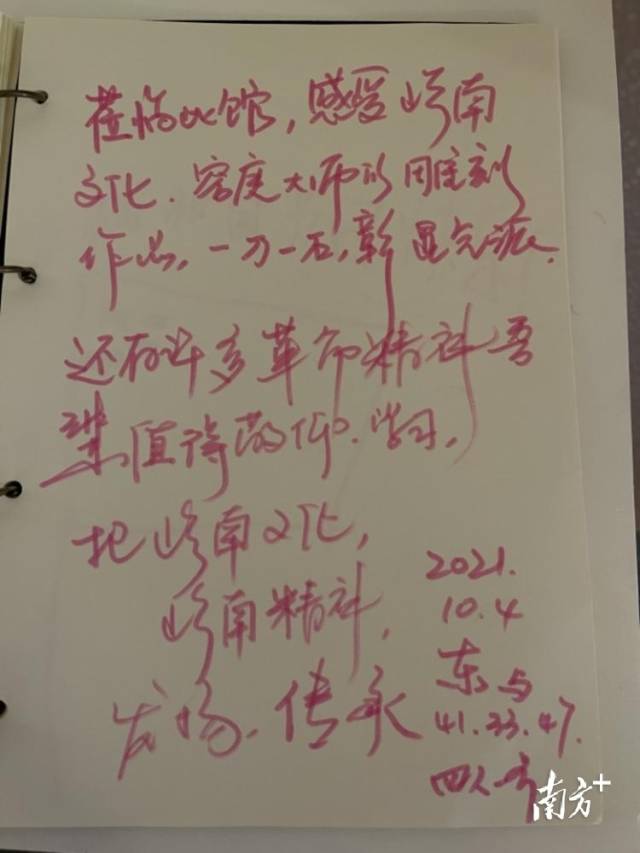 莅临此馆，感受岭南
文化。容庚大师的雕刻
作品，一刀一石，彰显
还有许多革命精神
值得敬仰、学习，
把岭南文化，
岭南精神，
发扬、传承
2021.
10.4
东与
41.33.47.
四人
南方+